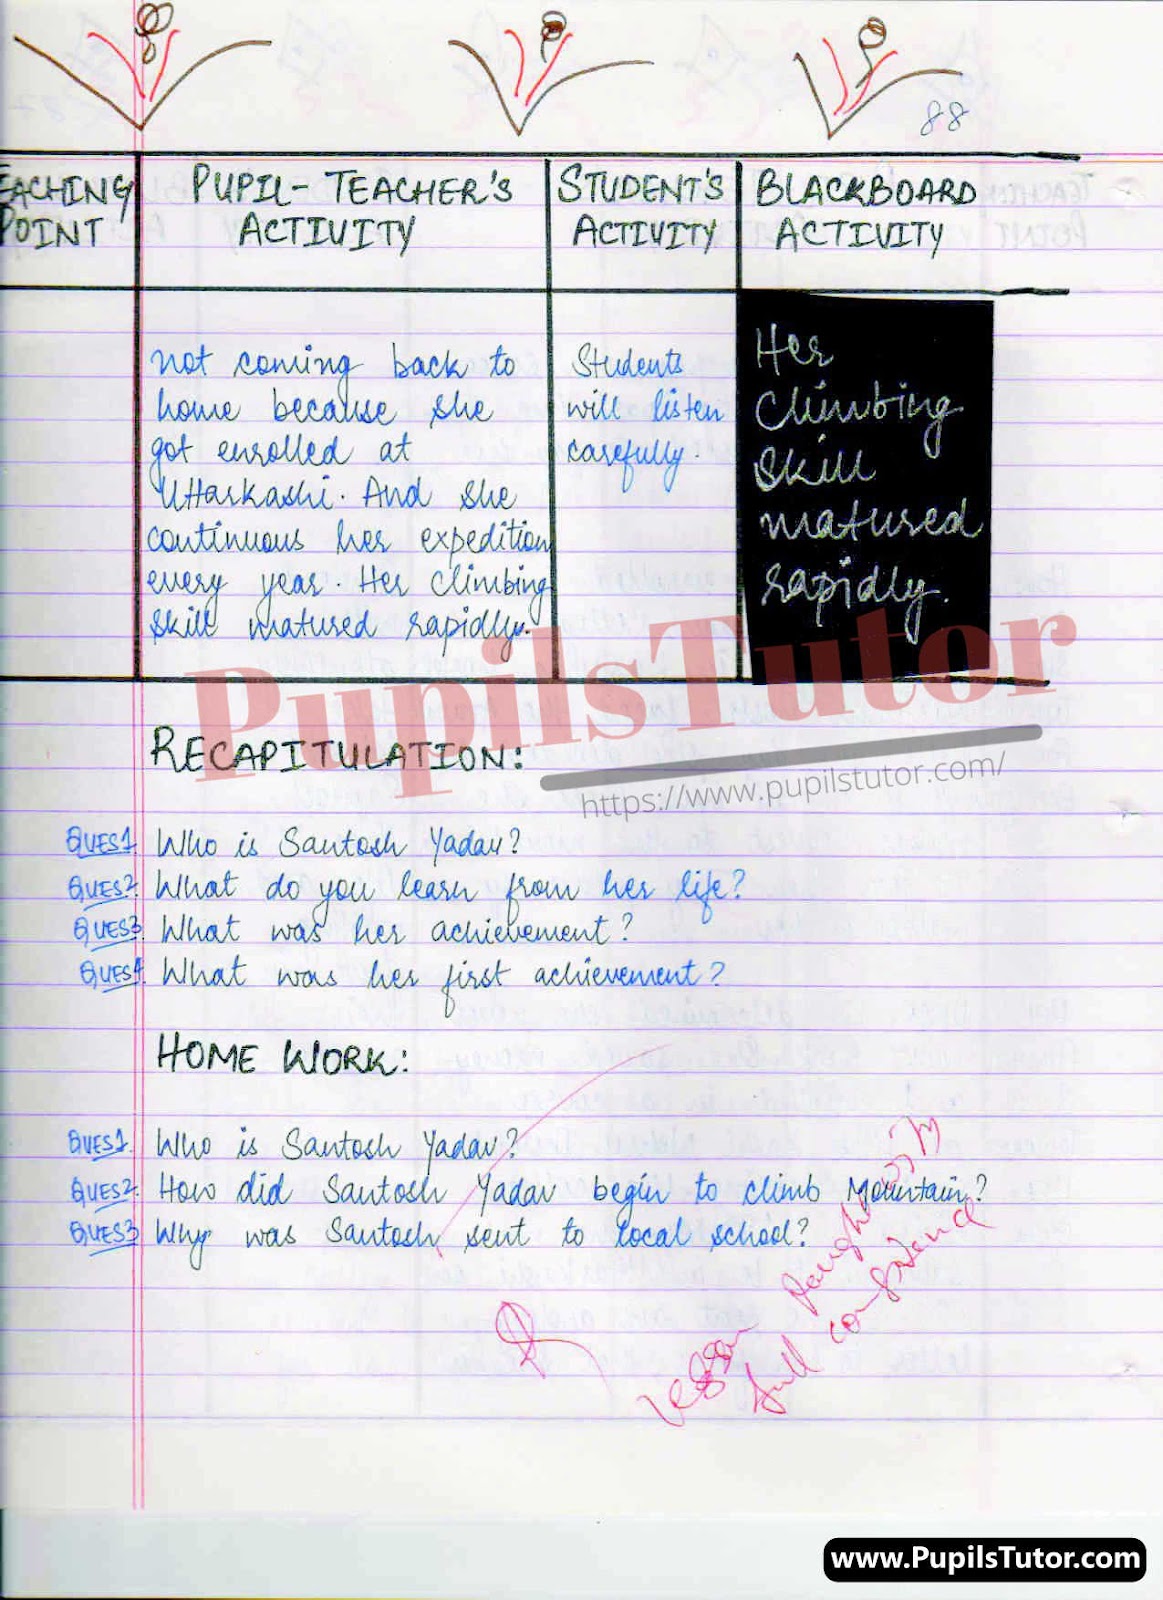 88
EACHING
POINT
PUPIL-TEACHER'S
ACTIVITY
STUDENT'S
ACTIVITY
BLACKBOARD
ACTIVITY
not coming back to
home because she
got enrolled at
Uttarkashi. And she
continuous her expedition
every year. Her climbing
skill matured rapidly.
Students
will listen
carefully.
Her
Climbing
skill
matured
rapidly.
PupilsTutor
https://www.pupilstutor.com/
RECAPITULATION:
QUES1. Who is Santosh Yadav?
QUES2. What do you learn from her life?
QUES3. What was her achievement?
QUES4. What was her first achievement?
HOME WORK:
QUES1. Who is Santosh Yadav?
QUES2. How did Santosh Yadav begin to climb Mountain?
QUES3. Why was Santosh sent to local school?
full confidence
www.PupilsTutor.com